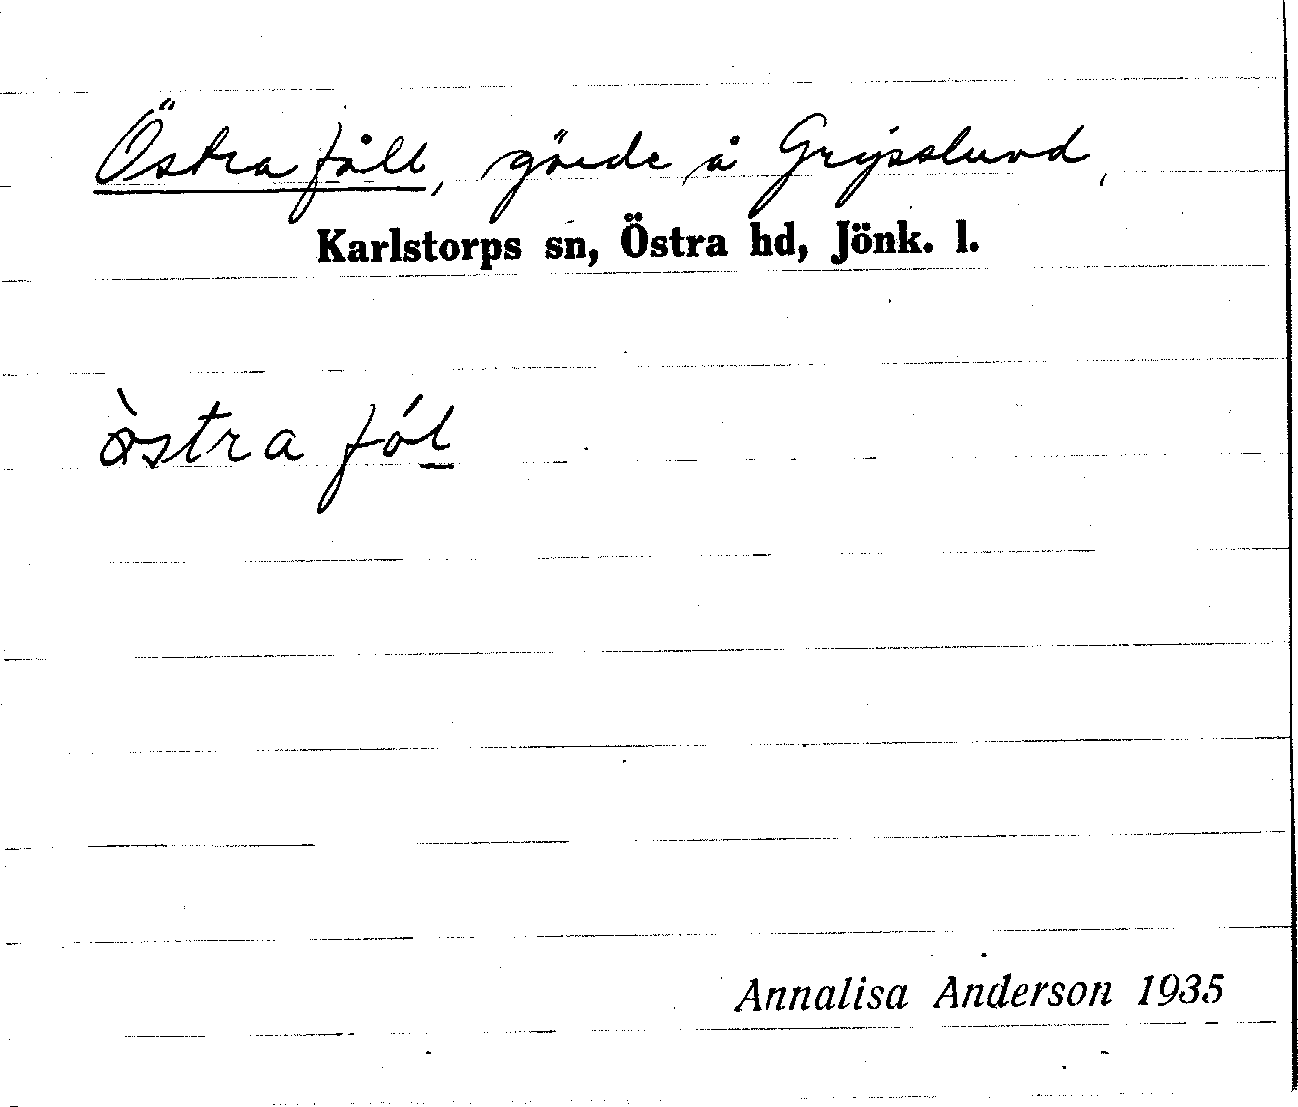 Östra fåll, gärde å Grytslund,
Karlstorps sn, Östra hd, Jönk. l.
östra fól
Annalisa Anderson 1935